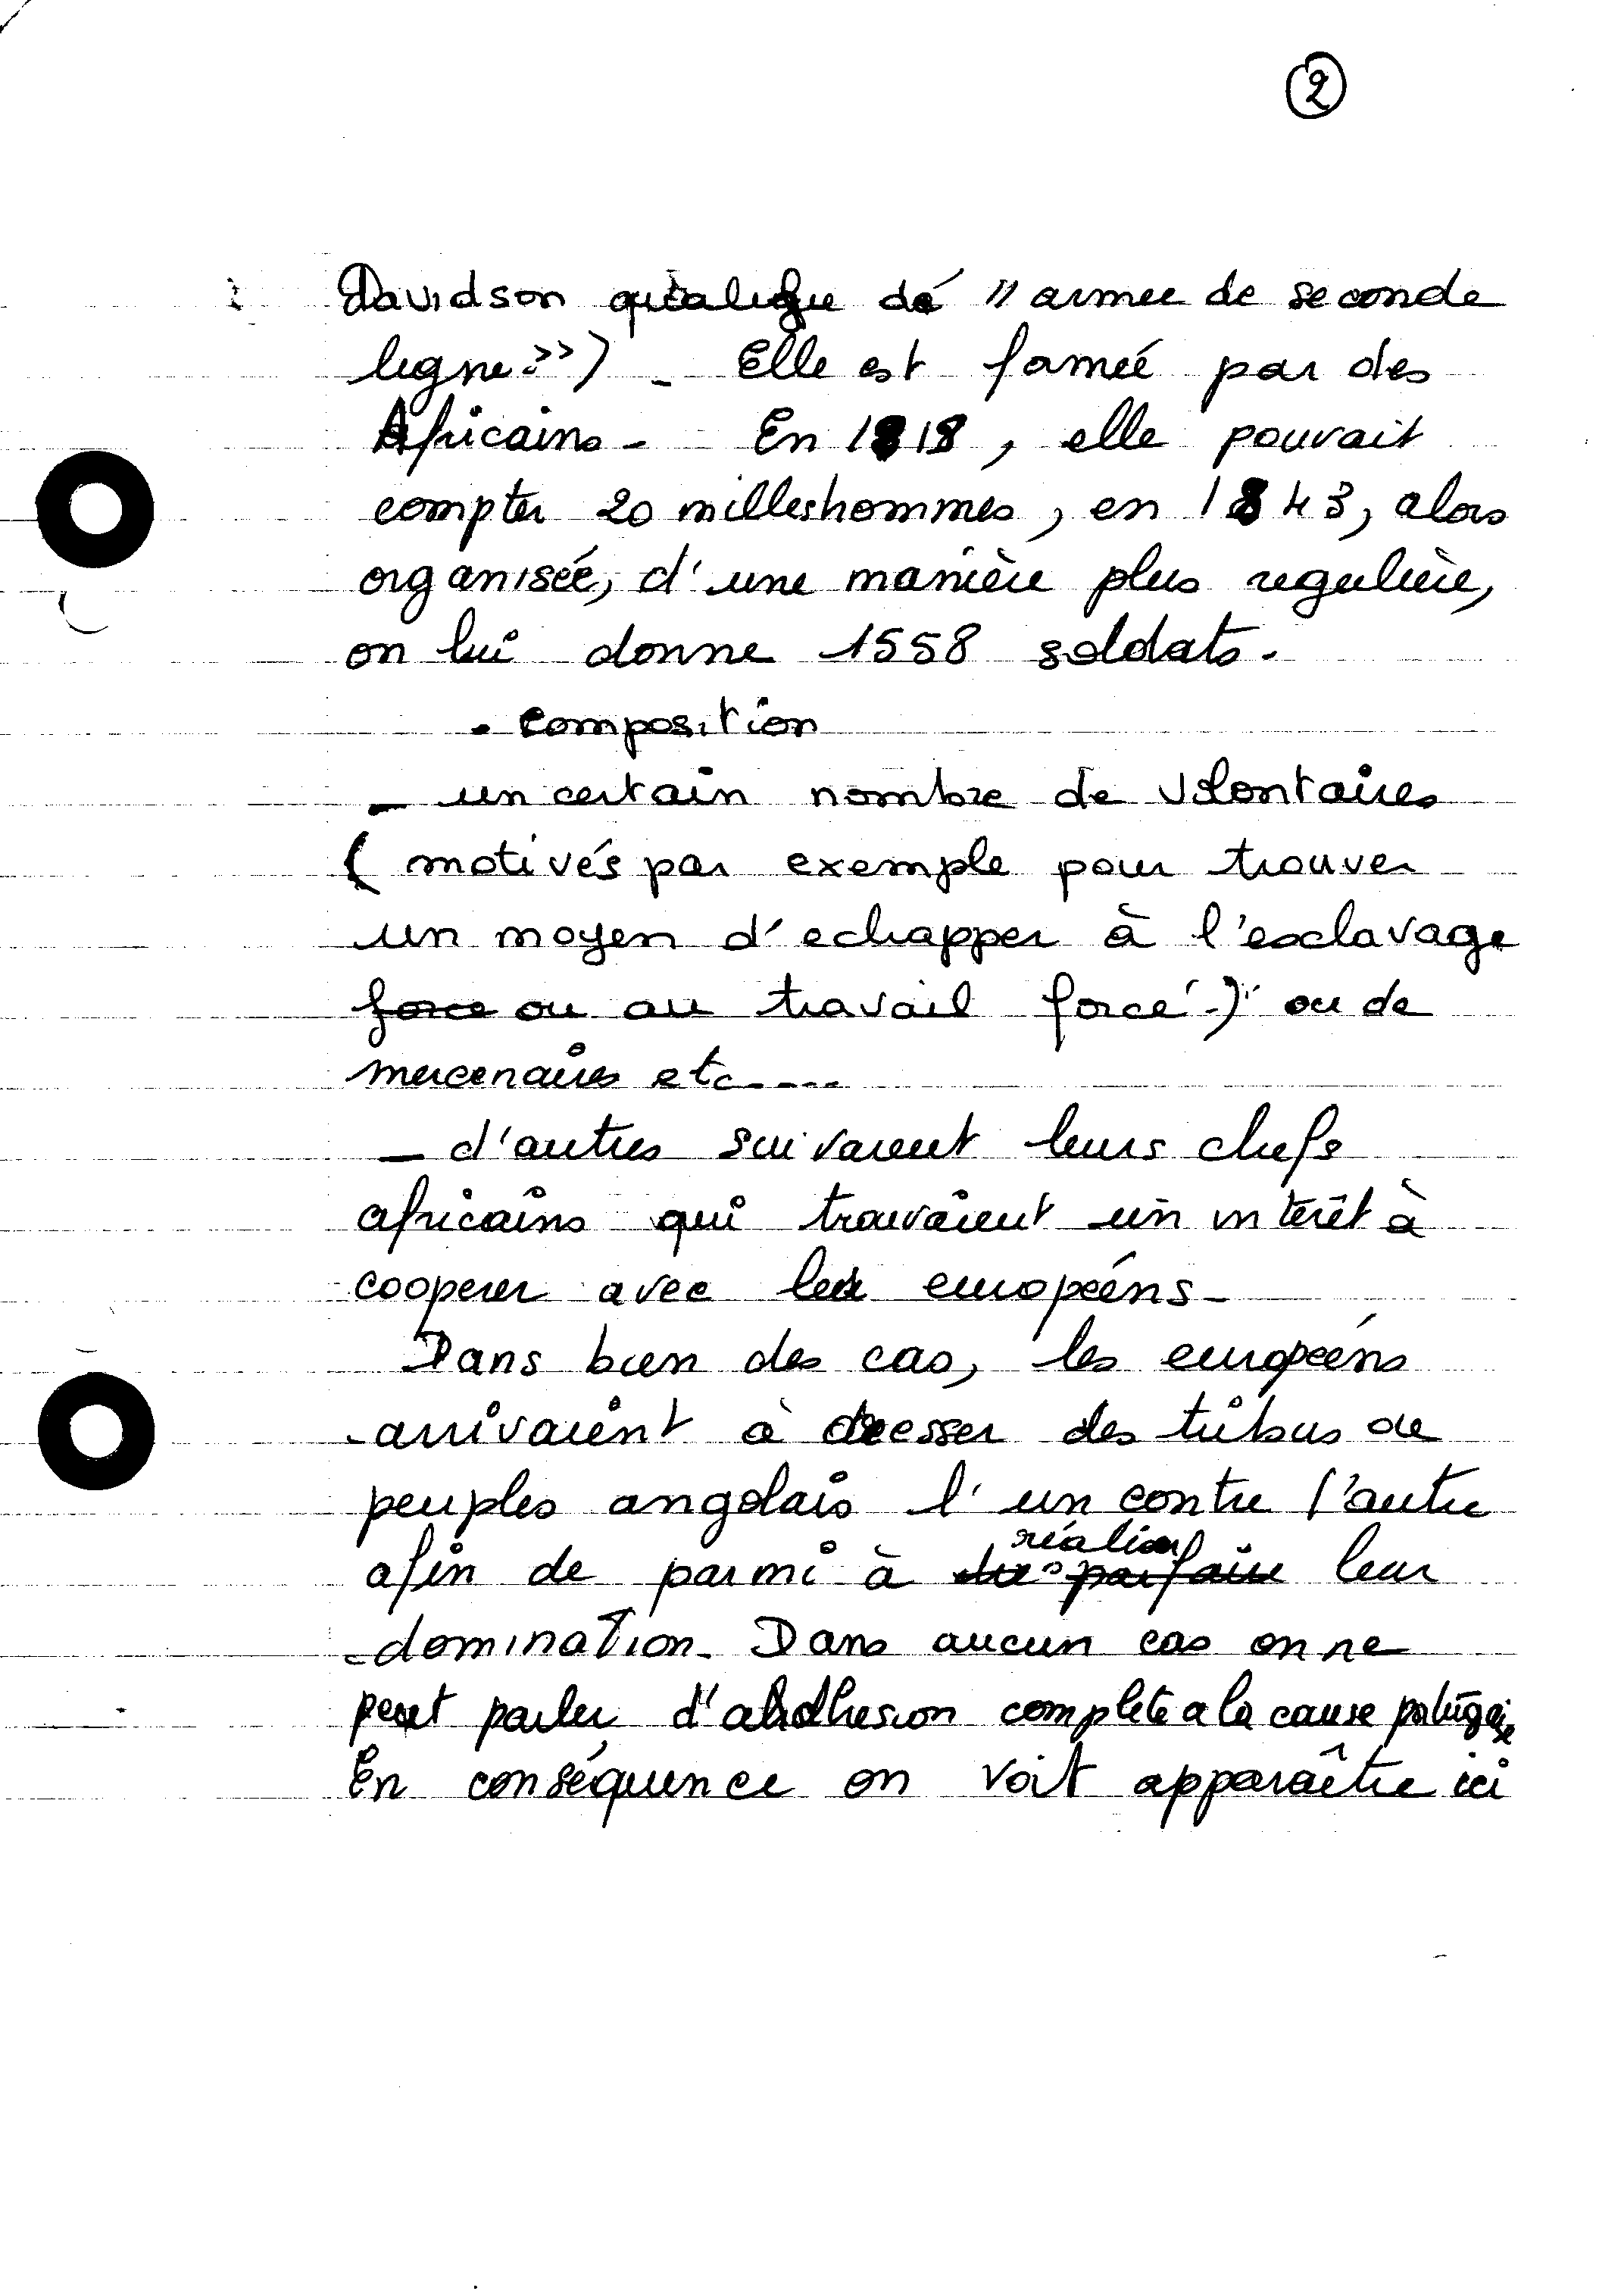 ②
Davidson qualifie de " armee de seconde
ligne >>) _ Elle est formée par des
Africains - En 1818, elle pouvait
compter 20 milles hommes, en 1843, alors
organisée, d'une manière plus regulière,
on lui donne 1558 soldats.
. composition
_ un certain nombre de volontaires
( motivés par exemple pour trouver
un moyen d'echapper à l'esclavage
force ou au travail forcé.) ou de
mercenaires etc----
_ d'autres suivaient leurs chefs
africains qui trouvaient un intérêt à
cooperer avec les européens_
Dans bien des cas, les européens
arrivaient à dresser des tribus ou
peuples angolais l'un contre l'autre
réaliser
afin de parmi à parfaire leur
domination_ Dans aucun cas on ne
peut parler d'adhesion complète a la cause portugaise
En conséquence on voit apparaître ici